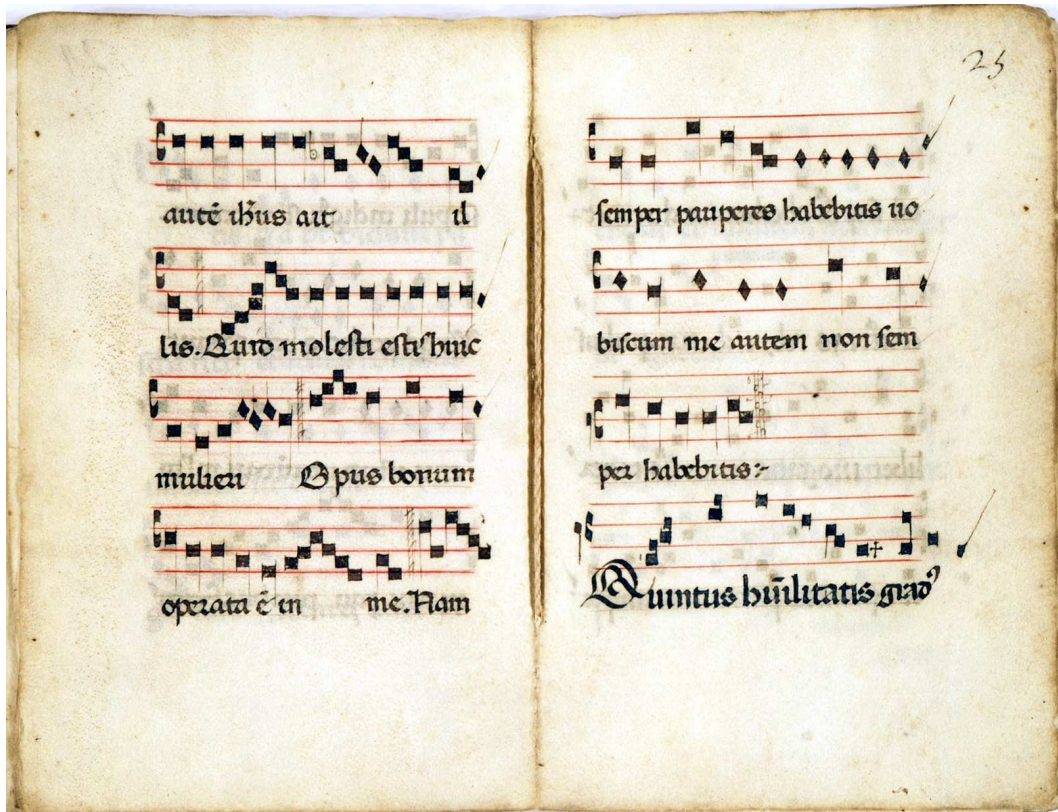 autē ihūs ait il
lis. Quid molesti estis huic
mulieri Opus bonum
operata ē in me. Nam
25
semper pauperes habebitis uo
biscum me autem non sem
per habebitis:~
Quintus hūilitatis gradꝰ